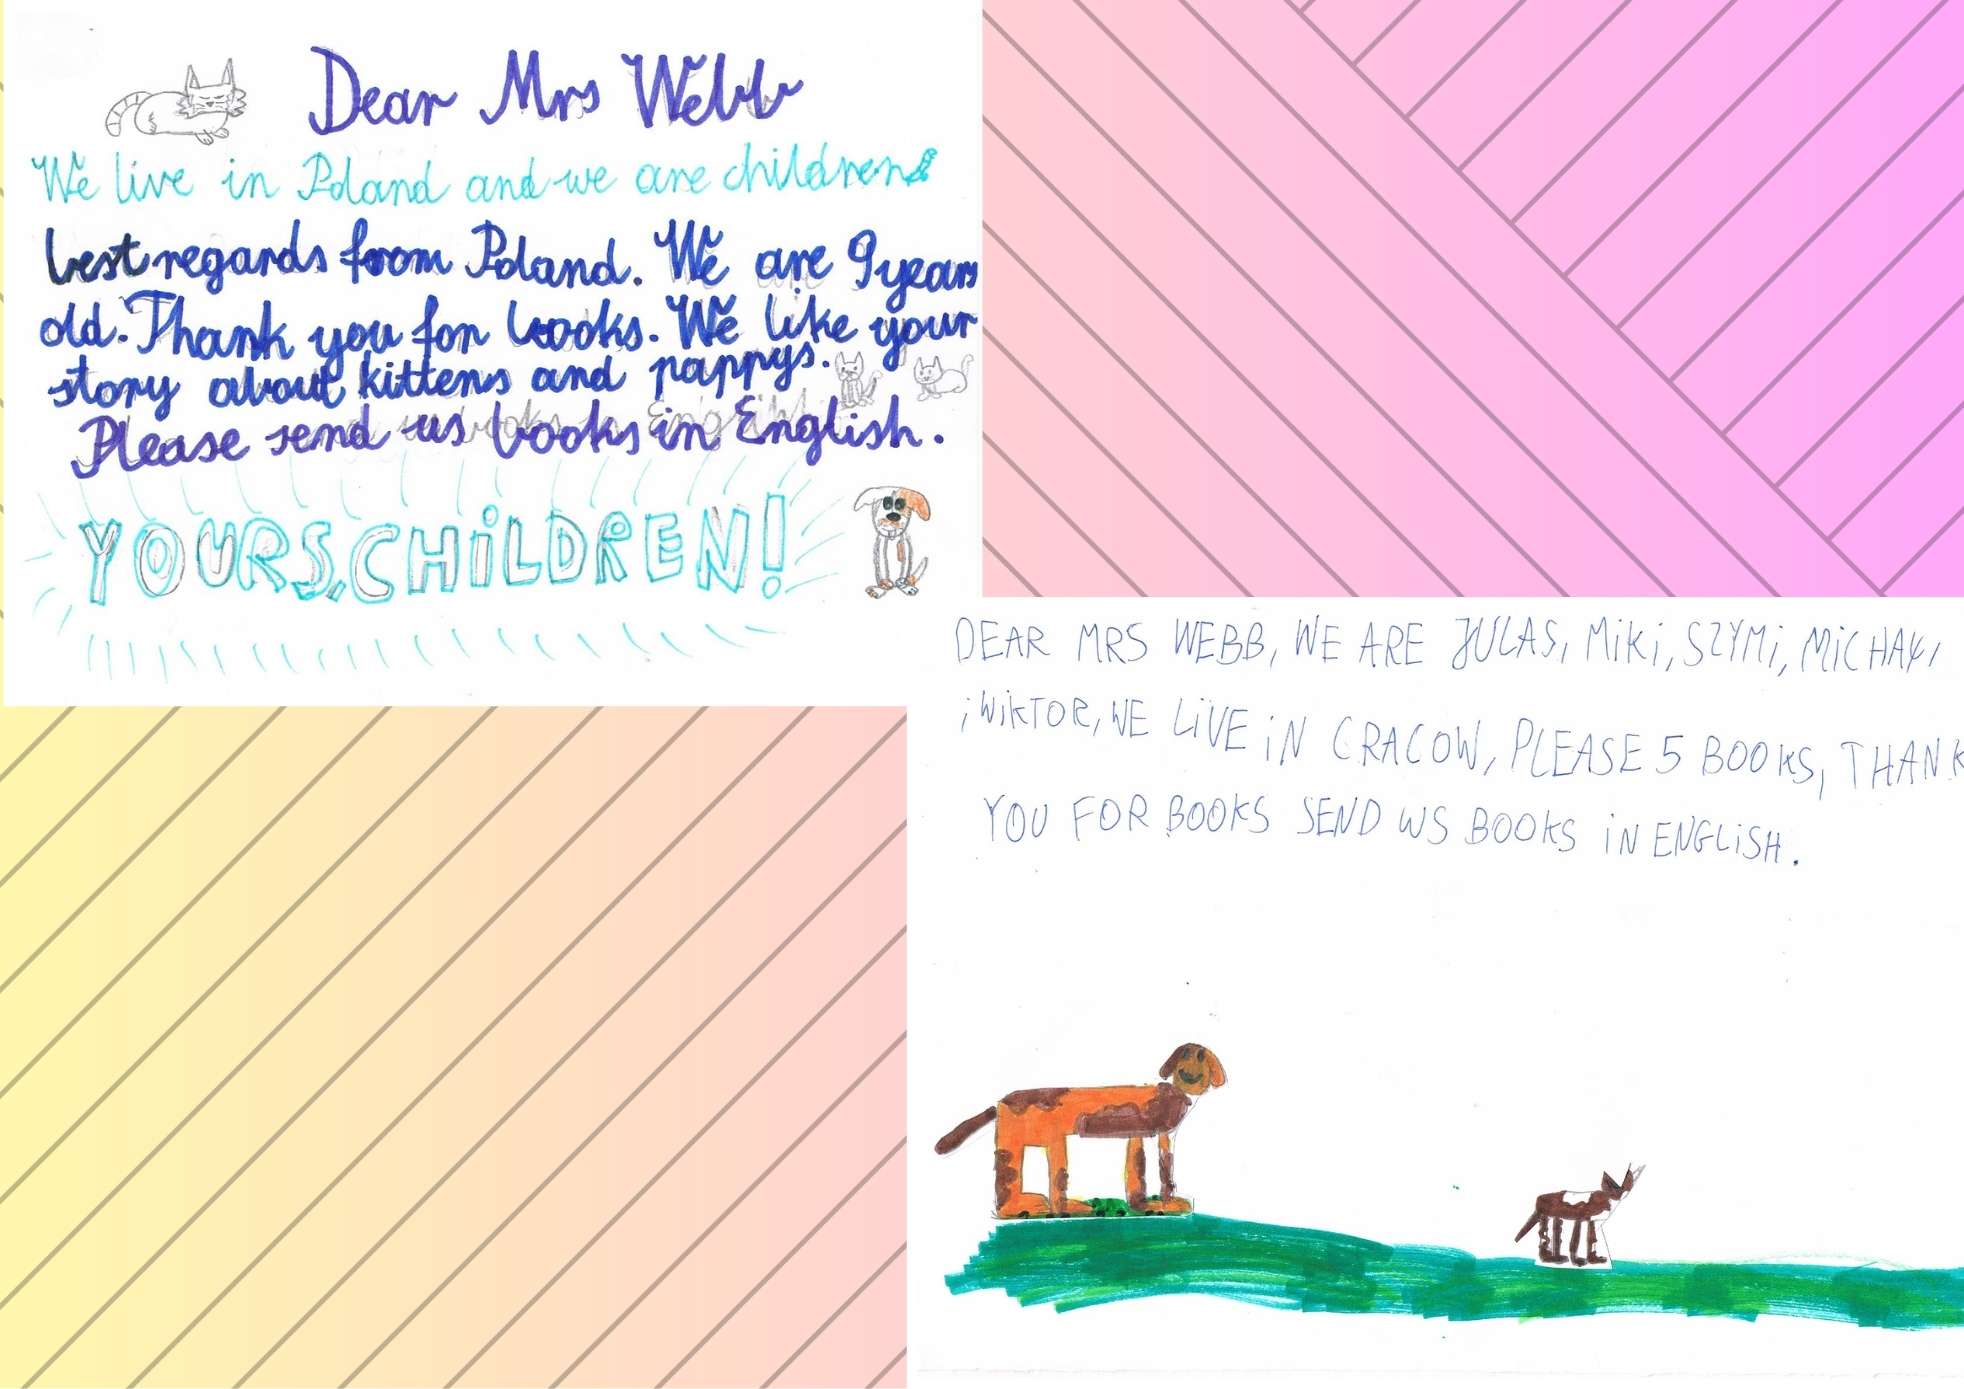 Dear Mrs Webb
We live in Poland and we are children
best regards from Poland. We are 9 years
old. Thank you for books. We like your
story about kittens and pappys.
Please send us books in English.
YOURS, CHiLDREN!
DEAR MRS WEBB, WE ARE JULAS, MiKi, SZYMi, MiCHAŁ,
i WiKTOR, WE LiVE iN CRACOW, PLEASE 5 BOOKS, THANK
YOU FOR BOOKS SEND WS BOOKS iN ENGLiSH.